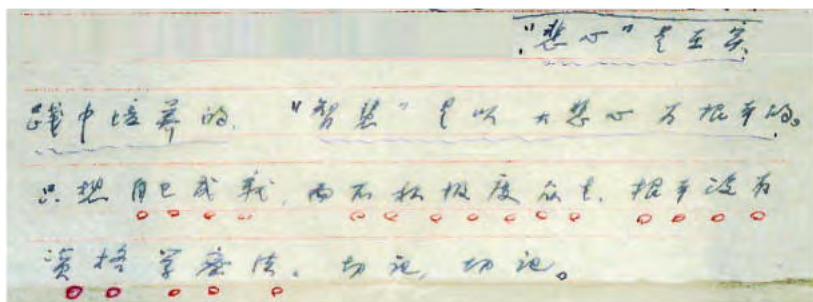 “悲心”是在实
践中培养的. “智慧”是以大悲心为根本的。
只想自己成就, 而不积极度众生, 根本没有
资格学密法。切记, 切记。